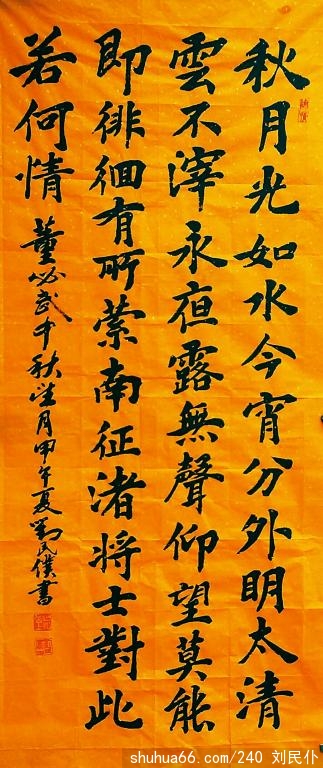 秋月光如水今宵分外明太清
雲不滓永亱露無聲仰望莫能
即徘徊有所萦南征渚將士對此
若何情
董必武中秋望月甲午夏劉民僕書
shuhua66.com/240 刘民仆